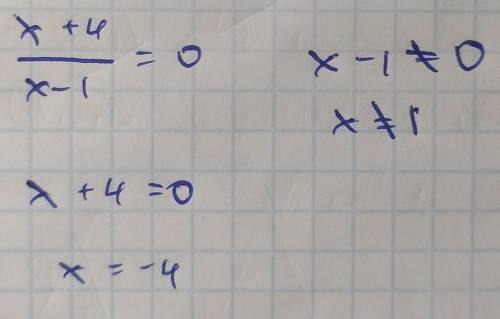 x + 4 / x - 1 = 0
x - 1 ≠ 0
x ≠ 1
x + 4 = 0
x = -4